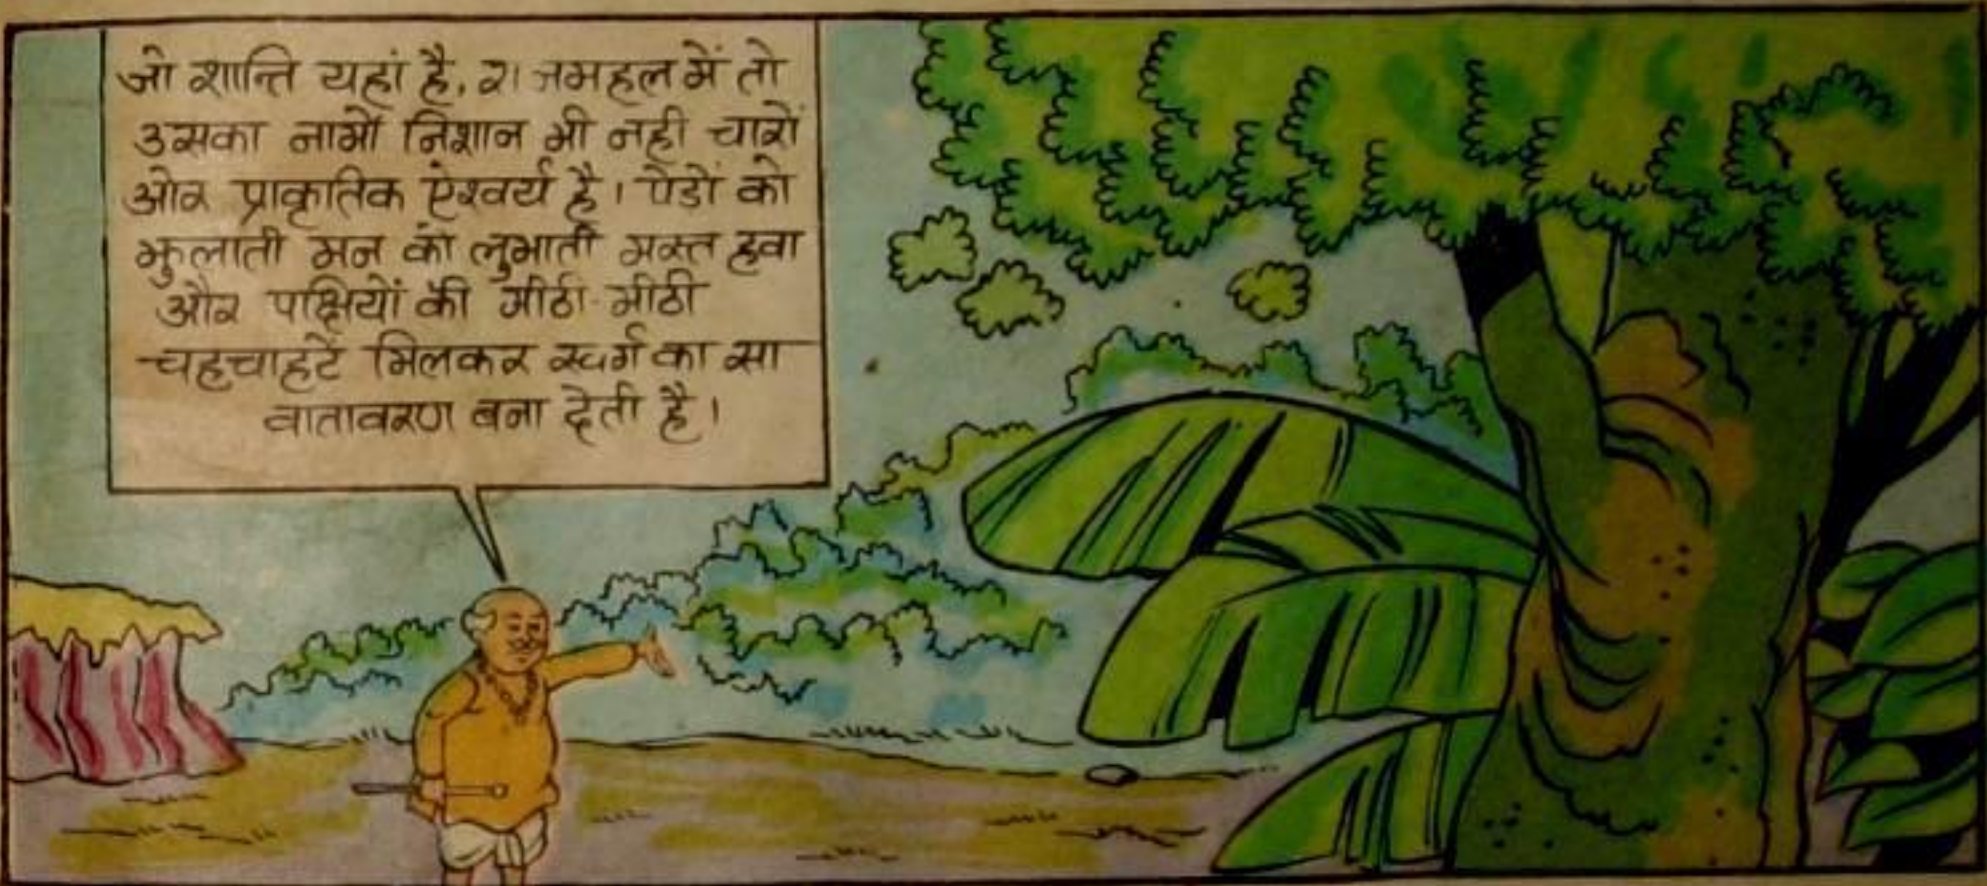 जो शान्ति यहां है, राजमहल में तो
उसका नामों निशान भी नही चारों
ओर प्राकृतिक ऐश्वर्य है। पेडों को
झुलाती मन को लुभाती मस्त हवा
और पक्षियों की मीठी-मीठी
चहचाहटें मिलकर स्वर्ग का सा
वातावरण बना देती है।